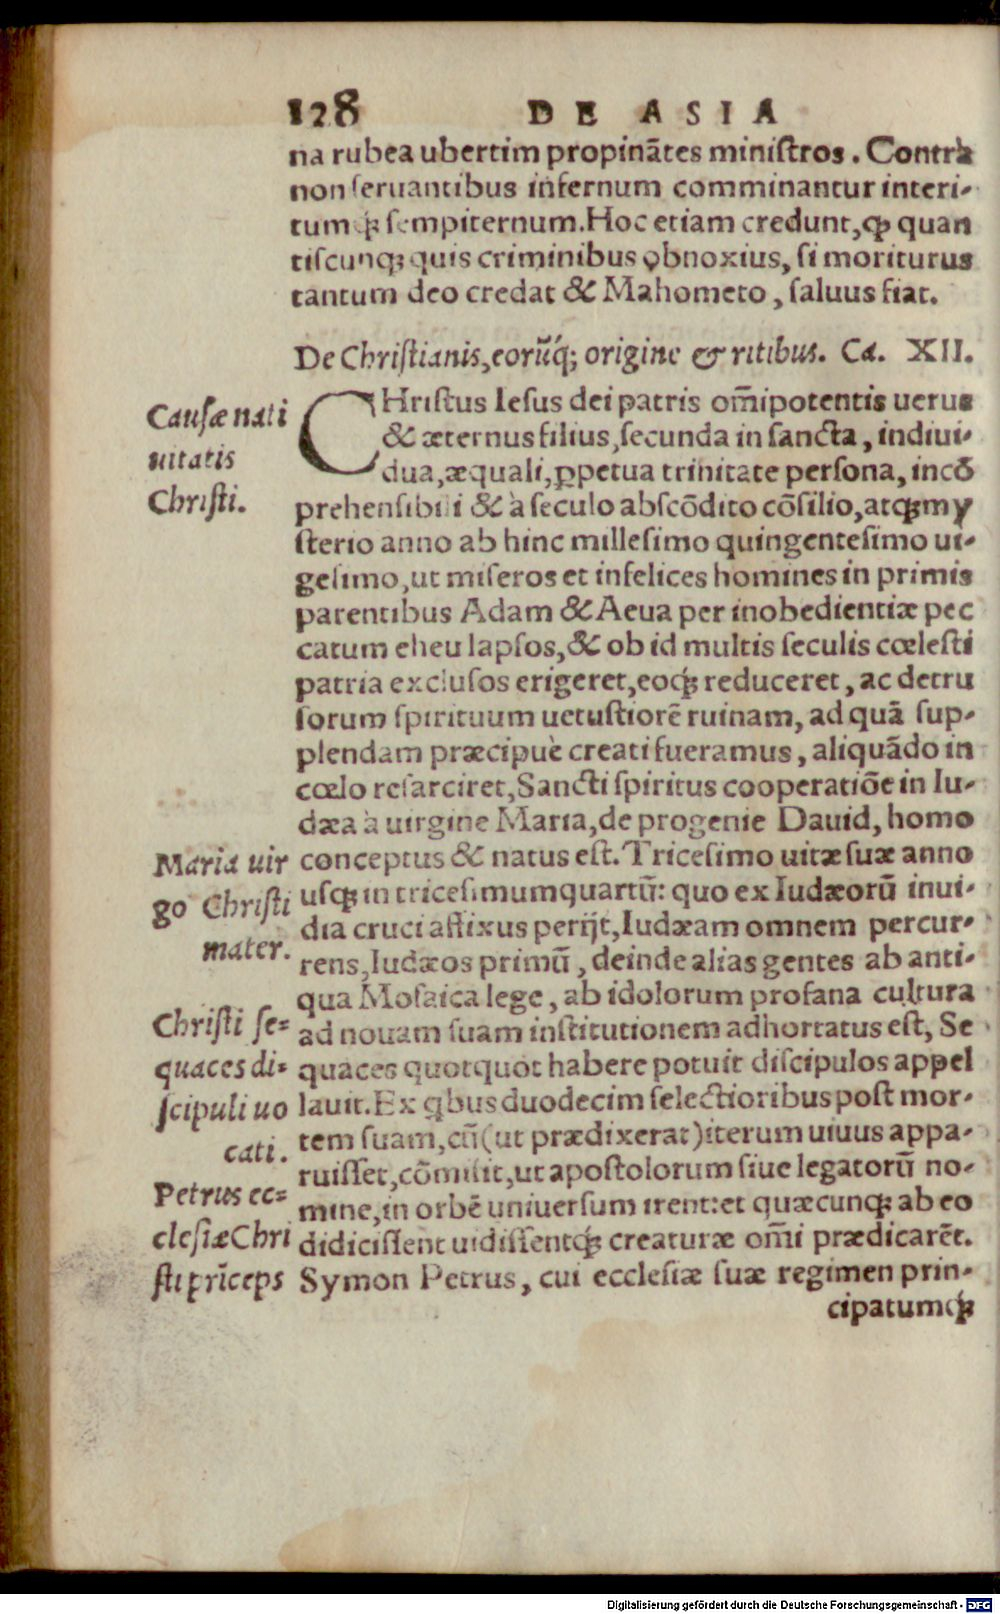 128 DE ASIA
na rubea ubertim propinãtes ministros. Contrà
non seruantibus infernum comminantur interi-
tumq́ꝫ sempiternum. Hoc etiam credunt, ꝙ quan
tiscunqꝫ quis criminibus obnoxius, si moriturus
tantum deo credat & Mahometo, saluus fiat.
De Christianis, eorũq́; origine & ritibus. Ca. XII.
Causæ nati
uitatis
Christi.
CHristus Iesus dei patris om̃ipotentis uerus
& æternus filius, secunda in sancta, indiui-
dua, æquali, ꝑpetua trinitate persona, incõ
prehensibili & à seculo abscõdito cõsilio, atqꝫ my
sterio anno ab hinc millesimo quingentesimo ui-
gesimo, ut miseros et infelices homines in primis
parentibus Adam & Aeua per inobedientiæ pec
catum eheu lapsos, & ob id multis seculis cœlesti
patria exclusos erigeret, eoqꝫ reduceret, ac detru
sorum spirituum uetustiorẽ ruinam, ad quã sup-
plendam præcipuè creati fueramus, aliquãdo in
cœlo resarciret, Sancti spiritus cooperatiõe in Iu-
dæa à uirgine Maria, de progenie Dauid, homo
Maria uir
go Christi
mater.
conceptus & natus est. Tricesimo uitæ suæ anno
usqꝫ in tricesimumquartũ: quo ex Iudæorũ inui-
dia cruci affixus perijt, Iudæam omnem percur-
rens, Iudæos primũ, deinde alias gentes ab anti-
qua Mosaica lege, ab idolorum profana cultura
Christi se=
quaces di=
scipuli uo
cati.
ad nouam suam institutionem adhortatus est, Se
quaces quotquot habere potuit discipulos appel
lauit. Ex qbus duodecim selectioribus post mor-
tem suam, cũ (ut prædixerat) iterum uiuus appa-
ruisset, cõmisit, ut apostolorum siue legatorũ no-
Petrus ec=
clesiæ Chri
sti prĩceps
mine, in orbẽ uniuersum irent: et quæcunqꝫ ab eo
didicissent uidissentq́ꝫ creaturæ om̃i prædicarẽt.
Symon Petrus, cui ecclesiæ suæ regimen prin-
cipatumq́ꝫ
Digitalisierung gefördert durch die Deutsche Forschungsgemeinschaft - DFG